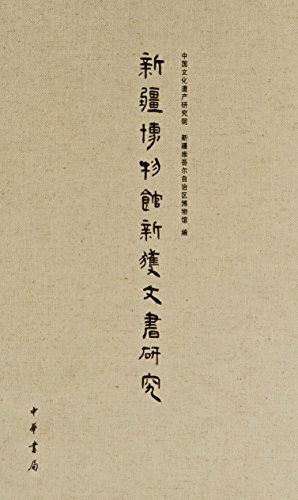 中国文化遗产研究院 新疆维吾尔自治区博物馆 编
新疆博物館新獲文書研究
中華書局